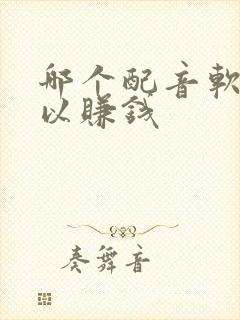 那个配音软
以赚钱
奏舞音